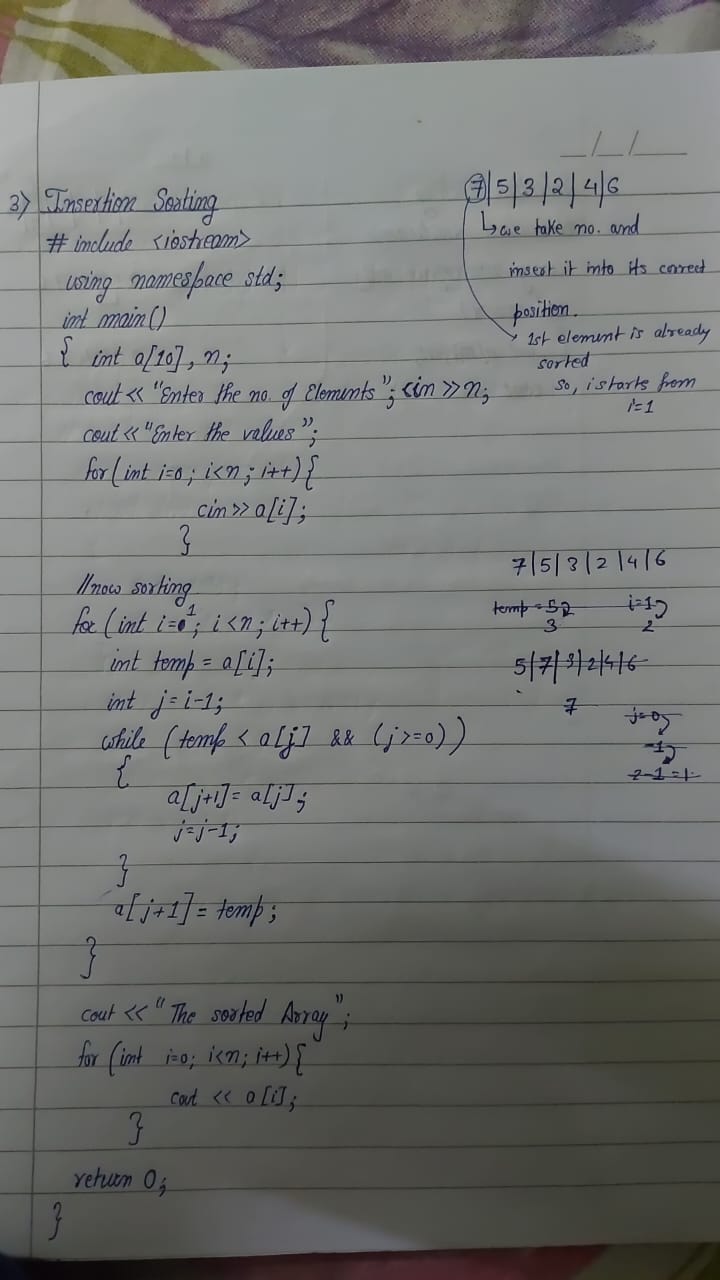 __/__/____
3) Insertion Sorting
# include <iostream>
using namespace std;
int main()
{ int a[10], n;
cout << "Enter the no. of Elements"; cin >> n;
cout << "Enter the values";
for (int i=0; i<n; i++) {
cin >> a[i];
}
//now sorting
for (int i=1; i<n; i++) {
int temp = a[i];
int j = i-1;
while (temp < a[j] && (j>=0))
{
a[j+1] = a[j];
j=j-1;
}
a[j+1] = temp;
}
cout << "The sorted Array";
for (int i=0; i<n; i++) {
cout << a[i];
}
return 0;
}
7|5|3|2|4|6
↳ we take no. and
insert it into its correct
position.
→ 1st element is already
sorted
So, i starts from
i=1
7|5|3|2|4|6
i=1
3 2
5|7|3|2|4|6
7
j=0
-1
2-1=1